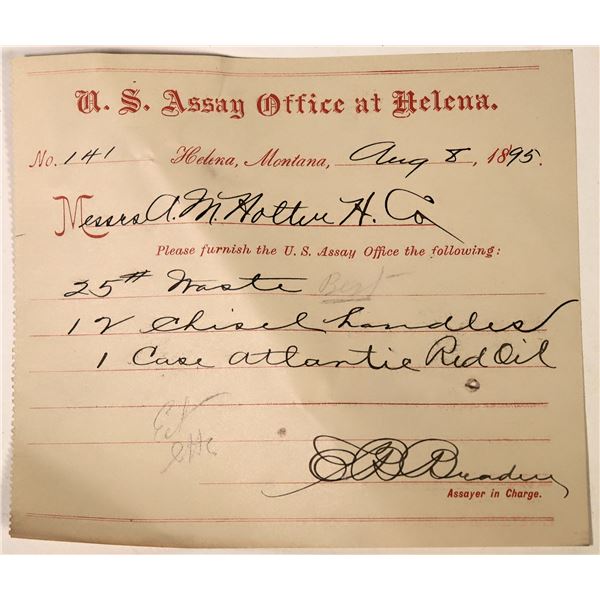 U. S. Assay Office at Helena.
No. 141 Helena, Montana, Aug 8, 1895.
Messrs A. M. Holter H. Co
Please furnish the U. S. Assay Office the following:
25# Waste Best
12 Chisel handles
1 Case Atlantic Red Oil
E B Braden
Assayer in Charge.